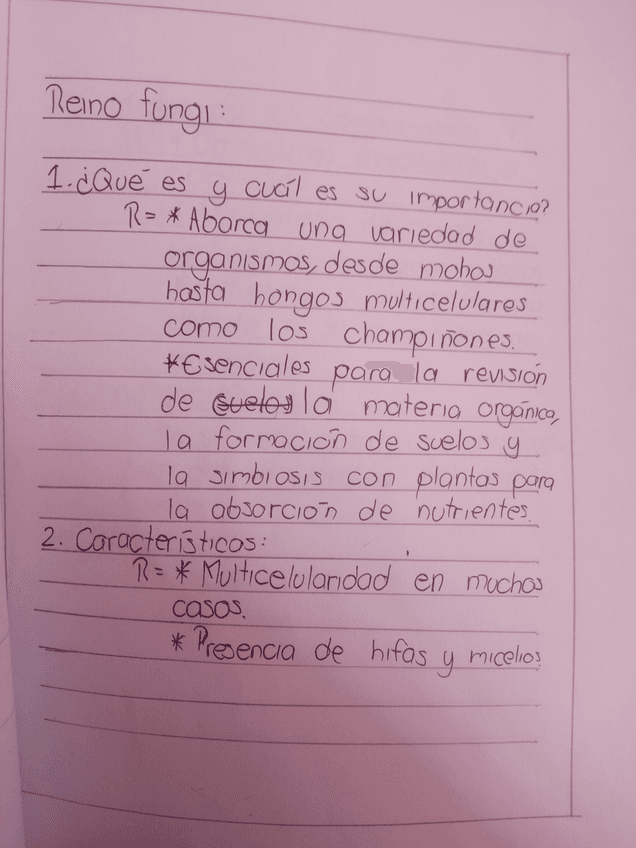 Reino fungi:
1. ¿Qué es y cuál es su importancia?
R= * Abarca una variedad de
organismos, desde mohos
hasta hongos multicelulares
como los champiñones.
*Esenciales para la revisión
de suelos la materia orgánica,
la formación de suelos y
la simbiosis con plantas para
la absorción de nutrientes.
2. Características:
R= * Multicelularidad en muchos
casos.
* Presencia de hifas y micelios.